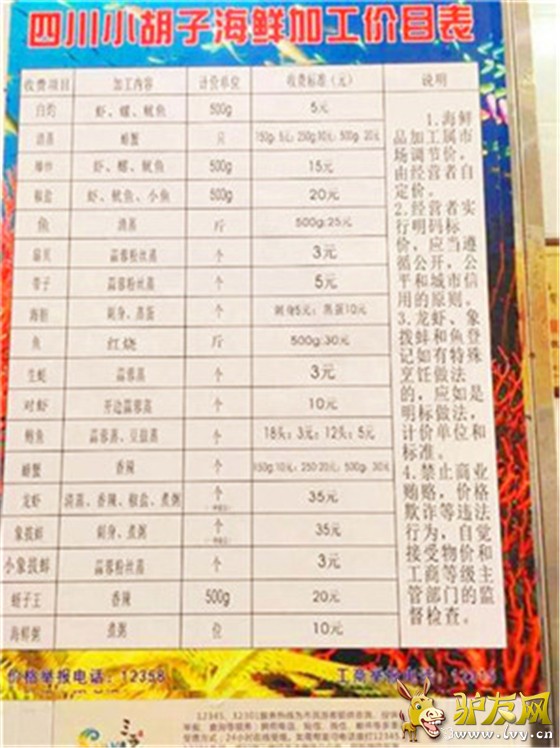 四川小胡子海鲜加工价目表
收费项目 加工内容 计价单位 收费标准（元） 说明
白灼 虾、螺、鱿鱼 500g 5元
清蒸 螃蟹 只 150g:5元; 250g:10元; 500g:20元
爆炒 虾、螺、鱿鱼 500g 15元
椒盐 虾、鱿鱼、小鱼 500g 20元
鱼 清蒸 斤 500g:25元
扇贝 蒜蓉粉丝蒸 个 3元
带子 蒜蓉粉丝蒸 个 5元
海胆 刺身、蒸蛋 个 刺身5元; 蒸蛋10元
鱼 红烧 斤 500g:30元
生蚝 蒜蓉蒸 个 3元
对虾 开边蒜蓉蒸 个 10元
鲍鱼 蒜蓉蒸、豆豉蒸 个 18头:3元; 12头:5元
螃蟹 香辣 个 150g:10元; 250:20元; 500g:30元
龙虾 清蒸、香辣、椒盐、煮粥 个 35元
象拔蚌 刺身、煮粥 个 35元
小象拔蚌 蒜蓉粉丝蒸 个 3元
蛏子王 香辣 500g 20元
海鲜粥 煮粥 位 10元
1.海鲜
品加工属市
场调节价，
由经营者自
定价。
2.经营者实
行明码标
价，应当遵
循公开，公
平和城市信
用的原则。
3.龙虾、象
拨蚌和鱼登
记如有特殊
烹饪做法
的，应如是
明标做法，
计价单位和
标准。
4.禁止商业
贿赂，价格
欺诈等违法
行为，自觉
接受物价和
工商等级主
管部门的监
督检查。
价格举报电话：12358
工商举报电话：12315
驴友网
lvy.cn